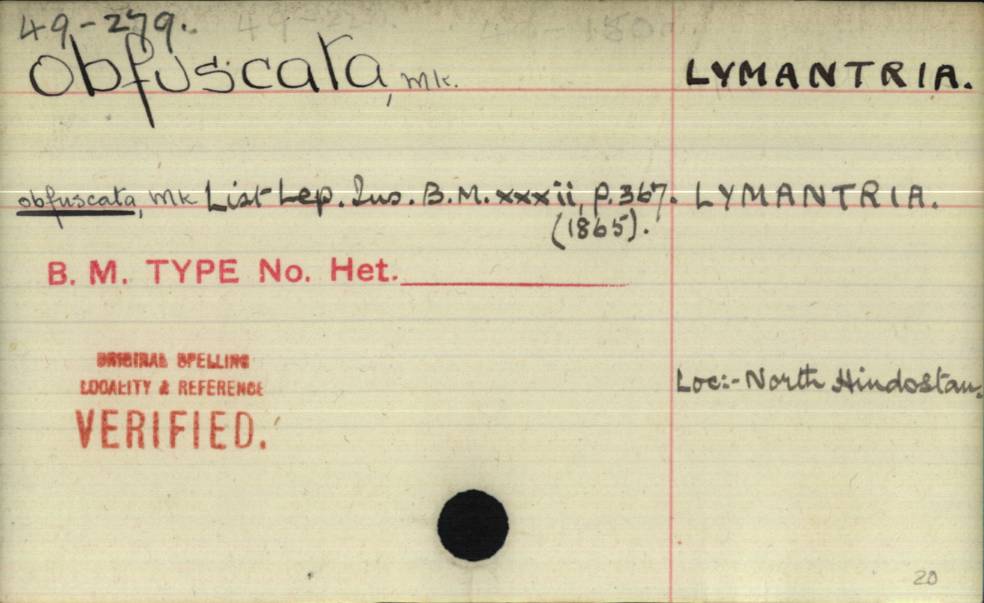 49-279.
obfuscata, Mk. LYMANTRIA.
obfuscata, Mk List Lep. Ins. B.M. xxxii, p.367. LYMANTRIA.
(1865).
B. M. TYPE No. Het.
ORIGINAL SPELLING
LOCALITY & REFERENCE
VERIFIED.
Loc:- North Hindostan.
20